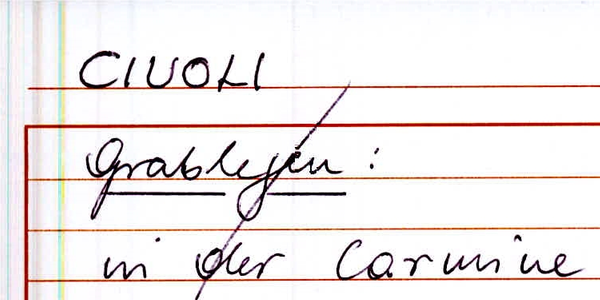 CIVOLI
Grablegen:
in der Carmine